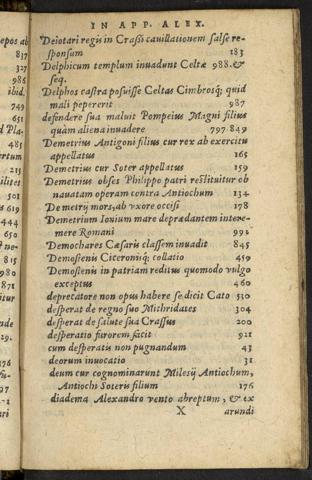 IN APP. ALEX.
Deiotari regis in Crassi cauillationem salse re-
sponsum 183
Delphicum templum inuadunt Celtæ 988. &
seq.
Delphos castra posuisse Celtas Cimbrosq; quid
mali pepererit 987
defendere sua maluit Pompeius Magni filius
quam aliena inuadere 797 849
Demetrius Antigoni filius cur rex ab exercitu
appellatus 165
Demetrius cur Soter appellatus 159
Demetrius obses Philippo patri restituitur ob
nauatam operam contra Antiochum 134
Demetrij mors, ab vxore occisi 178
Demetrium Ionium mare deprædantem intere-
mere Romani 991
Demochares Cæsaris classem inuadit 845
Demostenis Ciceronisq; collatio 459
Demostenis in patriam reditus quomodo vulgo
exceptus 460
deprecatore non opus habere se dicit Cato 510
desperat de regno suo Mithridates 304
desperat de salute sua Crassus 200
desperatio furorem facit 921
cum desperatis non pugnandum 43
deorum inuocatio 31
deum cur cognominarunt Milesij Antiochum,
Antiochi Soteris filium 176
diadema Alexandro vento abreptum, & ex
X arundi